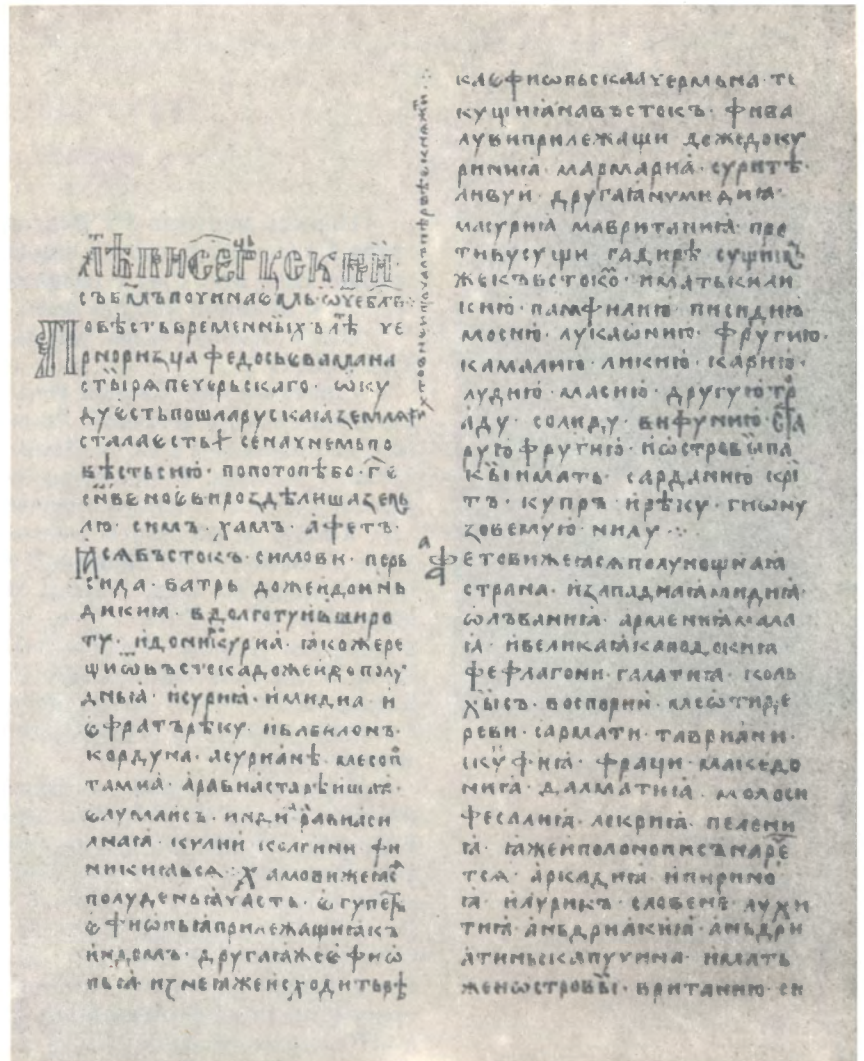 лѣпис̑ер҇цьскии ·
съб҃мъпоунаѥмъ · ѿче бл҃ви ·
Повѣстьвременныхълѣ҇ че
рноризцафедосьѥваманa
стырѧпечерьскаго · ѿку
дуєстьпошларускаꙗземлѧ
сталаєсть · сеначнемьпо
вѣстьсию · попотопѣбо · г҃е
сн҃веноєвирозьдѣлишазем
лю · симъ · хамъ · афетъ ·
Ꙗсѧвъстокъ · симови · перь
сида · батрь · дожендоинь
дикиꙗ · вдолготуивширо
ту · идонирꙋриа · ꙗкожере
щиѿвъстокадожеидополу
дньꙗ · исуриꙗ · имидиа · и
єфратърѣку · ивавилонъ ·
кордуна · асуриꙗнѣ · месоп҇
тамиа · аравиастарѣишаꙗ ·
єлумаисъ · инди · равиаси
лнаꙗ · кулии · колгини · фи
никиꙗвьсѧ · Хамовижеꙗс҇
полуденьꙗчасть · єгупетъ
єфиѡпьꙗприлежащиꙗкъ
индомъ · другаꙗжеєфиѡ
пьꙗ · изнеꙗжеисходитьрѣ
хтобнѡипочалъпѣрвѣєкнѧжи҇ти ·:
каєфиѡпьскаꙗчермьна · те
кущиꙗнавъстокъ · фива
лувиприлежащи · дожедоку
риниꙗ · мармариа · суритѣ ·
ливуи · другаꙗнумидиꙗ ·
масуриꙗ · мавританиꙗ · про
тивусущи · гадирѣ · сущимъ
жекъвъстоко҇ · иматькили
кию · памфилию · писидию
мосию · лукаѡнию · фругию ·
камалию · ликию · карию ·
лудию · масию · другуютро
аду · солиду · вифунию · ста
руюфругию · иѡстровыпа
кыимать · сарданию · кри
тъ · купръ · ирѣку · гиѡну
зовемую · нилу ·:
Афетовижеꙗсѧполунощнаꙗ
страна · изападнаꙗмидиꙗ ·
ѡлъваниꙗ · армениꙗмала
ꙗ · ивеликаꙗкаподокиꙗ
фефлагони · галатиꙗ · коль
хысъ · воспории · меѡтидѣ
реви · сармати · тавриани ·
скуфиꙗ · фраци · македо
ниꙗ · далматиꙗ · молоси
фесалиꙗ · локриꙗ · пелени
ꙗ · ꙗжеиполопонисънаре҇
тсѧ · аркадиꙗ · ипирино
ꙗ · илурикъ · словене · лухи
тиꙗ · аньдриакиꙗ · аньдри
атиньскапучина · имать
жеиѡстровы · вританию · си